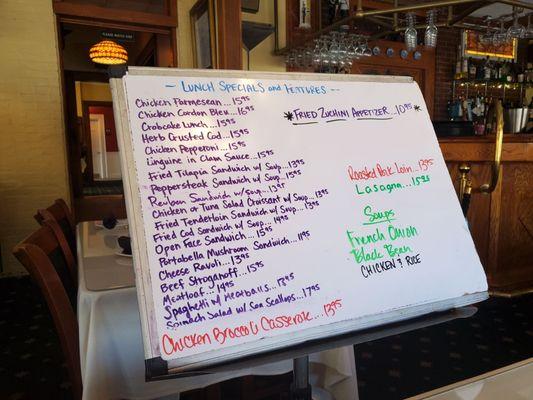 ~ Lunch Specials and Features ~
Chicken Parmesean...15.95
Chicken Cordon Bleu...16.95
Crabcake Lunch...15.95
Herb Crusted Cod...15.95
Chicken Pepperoni...15.95
Linguine in Clam Sauce...15.95
Fried Tilapia Sandwich w/ Soup...13.95
Peppersteak Sandwich w/ Soup...15.95
Reuben Sandwich w/ Soup...13.95
Chicken or Tuna Salad Croissant w/ Soup...13.95
Fried Tenderloin Sandwich w/ Soup...13.95
Fried Cod Sandwich w/ Soup...14.95
Open Face Sandwich...15.95
Portabella Mushroom Sandwich...11.95
Cheese Ravoli...13.95
Beef Stroganoff...15.95
Meatloaf...14.95
Spaghetti w/ Meatballs...13.95
Spinach Salad w/ Sea Scallops...17.95
Chicken Broccoli Casserole...13.95
*Fried Zuchini Appetizer...10.95
Roasted Pork Loin...13.95
Lasagna...15.95
Soups
French Onion
Black Bean
Chicken & Rice